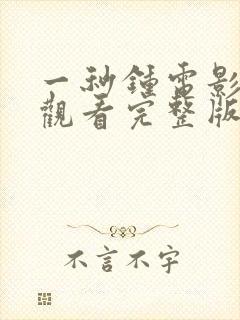 一秒鍾電影
觀看完整版
不言不字